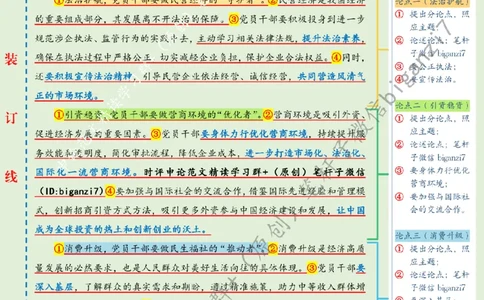 ①法治护航，党员干部要做民营经济的"守护者"。②民营经济是我国经济
的重要组成部分，其发展离不开法治的保障。③党员干部要积极投身到进一步
规范涉企执法、监管行为的实践中去，主动学习相关法律法规，提升法治素养，
确保在执法过程中严格公正，切实减轻企业负担，保护企业合法权益。④同时，
还要积极宣传法治精神，引导民营企业依法经营、诚信经营，共同营造风清气
正的市场环境。
①引资稳资，党员干部要做营商环境的"优化者"。②营商环境是吸引外资、
促进经济发展的重要因素。③党员干部要身体力行优化营商环境，持续提升服
务效能和透明度，简化审批流程，降低企业成本，进一步打造市场化、法治化、
国际化一流营商环境。时评申论范文精读学习群+（原创）笔杆子微信
（ID:biganzi7）④要加强与国际社会的交流合作，借鉴国际先进经验和管理模
式，创新招商引资方式方法，吸引更多外资参与中国经济建设和发展，让中国
成为全球投资的热土和创新创业的沃土。
①消费升级，党员干部要做民生福祉的"推动者"。②消费升级是经济高质
量发展的必然要求，也是人民群众对美好生活向往的具体体现。③党员干部要
深入基层，了解群众的真实需求和期盼，通过精准施策，助力中等收入群体增
装
订
线
论点一（法治护航）
① 提出分论点，照
应主题；
② 论述论点：笔杆
子微信 biganzi7
③ 要公正执法；
④ 要宣传法治。
论点二（引资稳资）
① 提出分论点，照
应主题；
② 论述论点：笔杆
子微信 biganzi7
③ 要身体力行优化
营商环境；
④ 要加强与国际社
会的交流合作。
论点三（消费升级）
① 提出分论点，照
应主题；
② 论述论点：笔杆
子微信 biganzi7